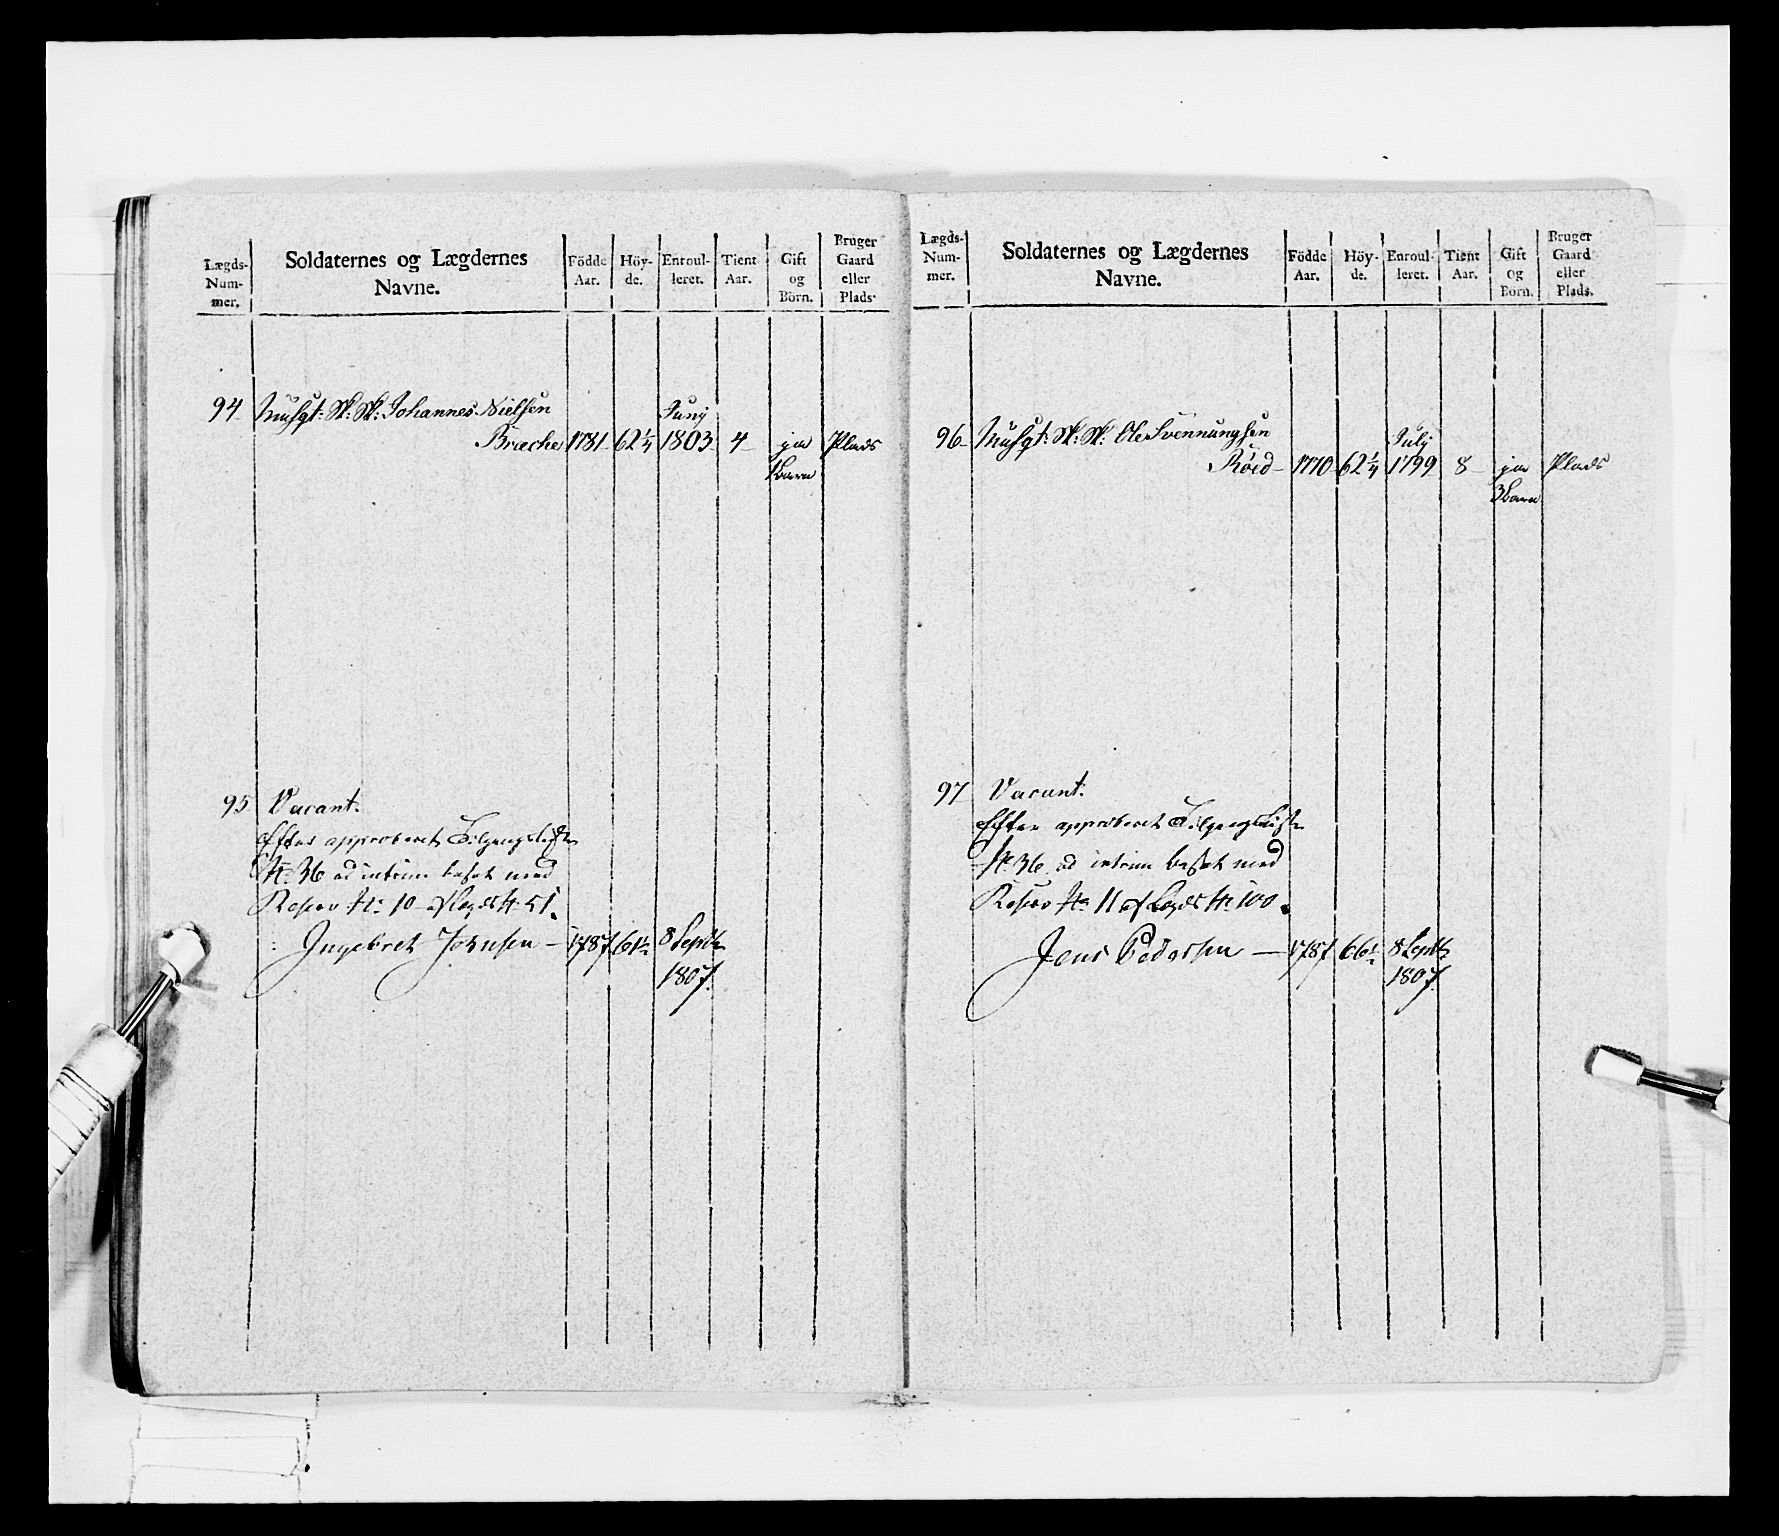 Lægds-
Num-
mer.
Soldaternes og Lægdernes
Navne.
Födde
Aar.
Höy-
de.
Enroul-
leret.
Tient
Aar.
Gift
og
Börn.
Bruger
Gaard
eller
Plads.
94 Musqt: Sk: Sk: Johannes Nielsen Junij
Bræche 1781 62¼ 1803 4 ja Plads
1 Barn
95 Vacant.
Efter approberet Tilgangsliste
No 36 ad intrim besat med
Reserv No 10 af Lægds No 51.
Ingebret Johnsen - 1787 61½ 8 Septb
1807.
Lægds-
Num-
mer.
Soldaternes og Lægdernes
Navne.
Födde
Aar.
Höy-
de.
Enroul-
leret.
Tient
Aar.
Gift
og
Börn.
Bruger
Gaard
eller
Plads.
96 Musqt: Sk: Sk: Ole Svennungsen Julij
Röed 1770 62¼ 1799 8 ja Plads
3 Barn
97 Vacant.
Efter approberet Tilgangsliste
No 36 ad intrim besat med
Reserv No 11 af Lægds No 100.
Jens Pedersen - 1787 66½ 8 Septb
1807.